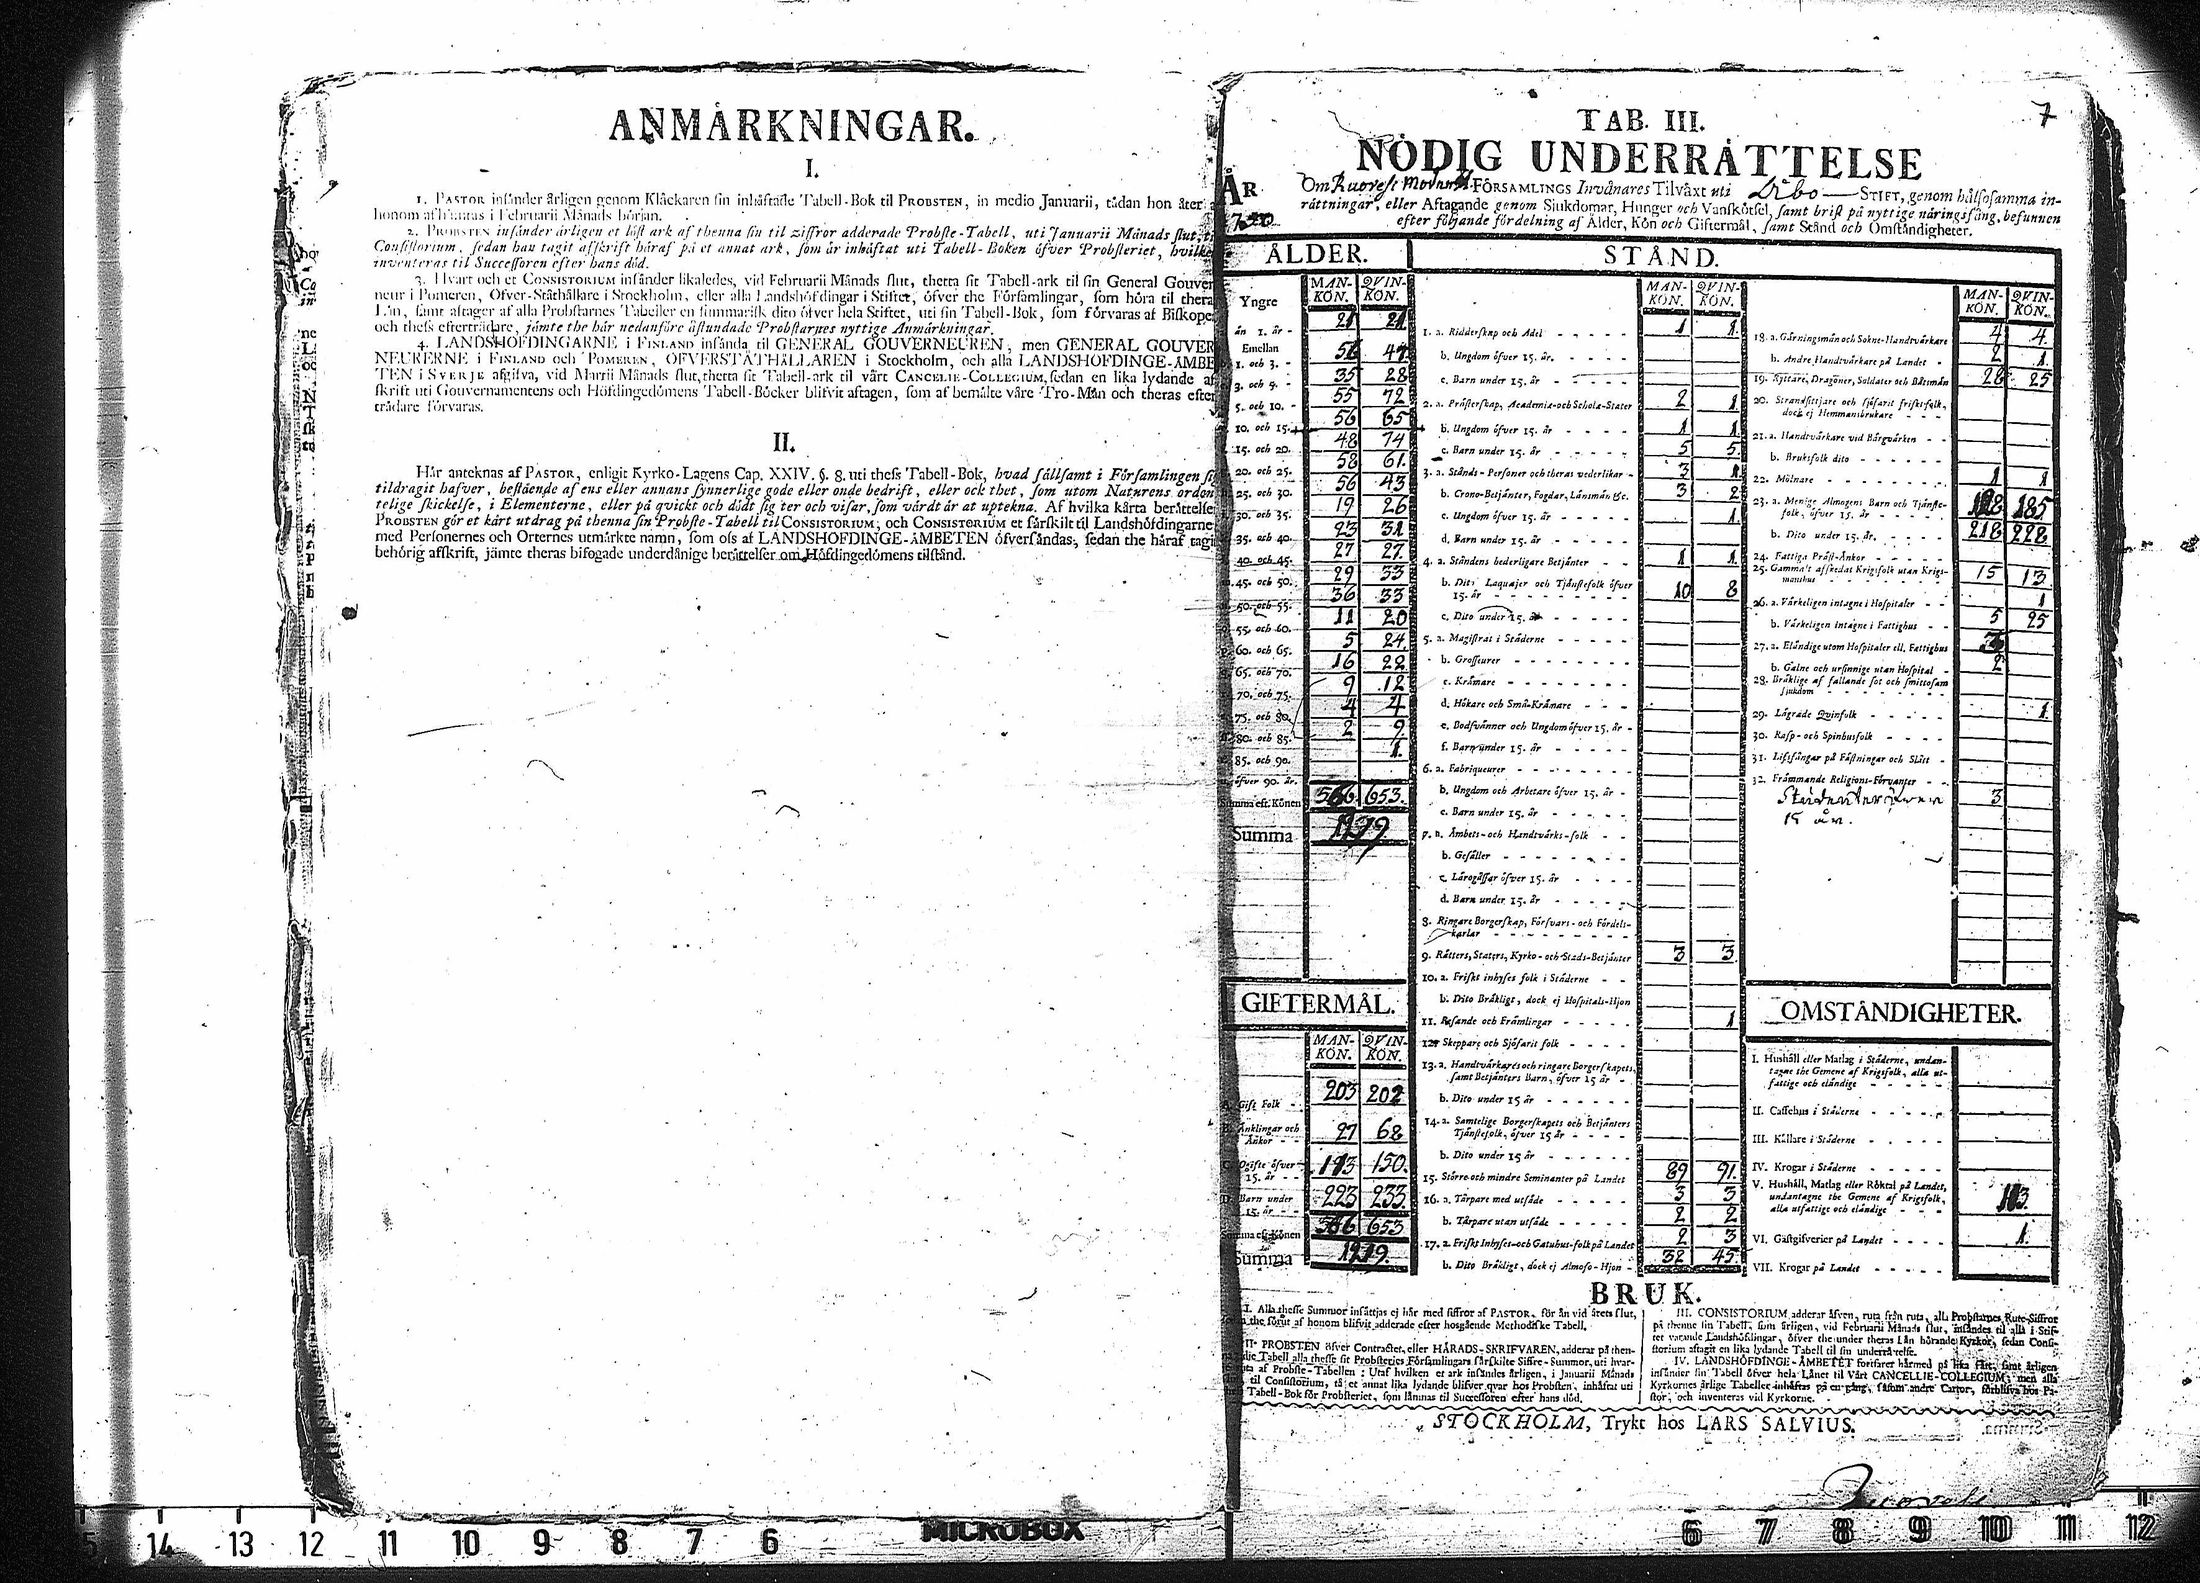 ANMÄRKNINGAR.
I.
1. PASTOR insänder årligen genom Klåckaren sin inhäftade Tabell-Bok til PROBSTEN, in medio Januarii, tädan hon åter
honom afhämtas i Februarii Månads början.
2. PROBSTEN insänder årligen et löst ark af thenna sin til ziffror adderade Probste-Tabell, uti Januarii Månads slut,
Consistorium, sedan han tagit afskrift häraf på et annat ark, som är inhäftat uti Tabell-Boken öfver Probsteriet, hvilke
inventeras til Successoren efter hans död.
3. Hvart och et CONSISTORIUM insänder likaledes, vid Februarii Månads slut, thetta sit Tabell-ark til sin General Gouver
neur i Pomeren, Öfver-Ståthållare i Stockholm, eller alla Landshöfdingar i Stiftet, öfver the Församlingar, som höra til thera
Län, samt aftager af alla Probstarnes Tabeller en summarisk dito öfver hela Stiftet, uti sin Tabell-Bok, som förvaras af Biskope
och thess efterträdare, jämte the här nedanföre åstundade Probstarnes nyttige Anmärkningar.
4. LANDSHÖFDINGARNE i FINLAND insända til GENERAL GOUVERNEUREN, men GENERAL GOUVER
NEURERNE i FINLAND och POMEREN, ÖFVERSTÅTHÅLLAREN i Stockholm, och alla LANDSHÖFDINGE-ÄMBE
TEN i SVERJE afgifva, vid Martii Månads slut, thetta sit Tabell-ark til vårt CANCELIE-COLLEGIUM, sedan en lika lydande af
skrift uti Gouvernamentens och Höfdingedömens Tabell-Böcker blifvit aftagen, som af bemälte våre Tro-Män och theras efter
trädare förvaras.
II.
Här anteknas af PASTOR, enligit Kyrko-Lagens Cap. XXIV. §. 8. uti thess Tabell-Bok, hvad sällsamt i Församlingen sig
tildragit hafver, bestående af ens eller annans synnerlige gode eller onde bedrift, eller ock thet, som utom Naturens orden
telige skickelse, i Elementerne, eller på qvickt och dödt sig ter och visar, som värdt är at uptekna. Af hvilka kärta berättelse
PROBSTEN gör et kårt utdrag på thenna sin Probste-Tabell til CONSISTORIUM; och CONSISTORIUM et särskilt til Landshöfdingarne
med Personernes och Orternes utmärkte namn, som oss af LANDSHÖFDINGE-ÄMBETEN öfversändas, sedan the häraf tagi
behörig afskrift, jämte theras bifogade underdånige berättelser om Höfdingedömens tilstånd.
7
TAB. III.
NÖDIG UNDERRÄTTELSE
ÅR
Om Ruovesi FÖRSAMLINGS Invånares Tilväxt uti Åbo STIFT, genom hälsosamma in-
rättningar, eller Aftagande genom Sjukdomar, Hunger och Vanskötsel, samt brist på nyttige näringsfång, befunnen
efter följande fördelning af Ålder, Kön och Giftermål, samt Stånd och Omständigheter.
ÅLDER.
MAN-KÖN. QVIN-KÖN.
Yngre än 1. år - 21 21
Emellan
1. och 3. - 56 47
3. och 5. - 35 28
5. och 10. - 55 72
10. och 15. 56 65
15. och 20. 48 74
20. och 25. 58 61.
25. och 30. 56 43
30. och 35. 19 26
35. och 40. 23 31
40. och 45. 27 27.
45. och 50. 29 33
50. och 55. 36 33
55. och 60. 11 20
60. och 65. 5 24
65. och 70. 16 22
70. och 75. 9 12
75. och 80. 4 4
80. och 85. 2 9
85. och 90. 1.
öfver 90. år.
Summa eft. Könen 653.
Summa
GIFTERMÅL.
MAN-KÖN. QVIN-KÖN.
Gift Folk - 203 202
Änklingar och Änkor - - 27 68
Ogifte öfver 15. år - - 150.
Barn under 15. år - - 223 233.
Summa eft. Könen 653
Summa
STÅND.
MAN-KÖN. QVIN-KÖN.
1. a. Ridderskap och Adel - - - - 1 1.
b. Ungdom öfver 15. år. - - - -
c. Barn under 15. år - - - -
2. a. Prästerskap, Academiæ-och Scholæ-Stater 2 1.
b. Ungdom öfver 15. år - - - - 1 1.
c. Barn under 15. år - - - - 5 5.
3. a. Stånds-Personer och theras vederlikar - 3 1
b. Crono-Betjänter, Fogdar, Länsmän &c. 3 2
c. Ungdom öfver 15. år - - - - 1.
d. Barn under 15. år - - - -
4. a. Ståndens hederligare Betjänter - - 1 1
b. Dito Laquajer och Tjänstefolk öfver
15. år - - - - 10 8
c. Dito under 15. år - - - -
5. a. Magistrat i Städerne - - - -
b. Grosseurer - - - -
c. Krämare - - - -
d. Hökare och Små-Krämare - - -
e. Bodsvänner och Ungdom öfver 15. år -
f. Barn under 15. år - - - -
6. a. Fabriqueurer - - - -
b. Ungdom och Arbetare öfver 15. år -
c. Barn under 15. år - - - -
7. a. Ämbets-och Handtvärks-folk - -
b. Gesäller - - - -
c. Lärogåssar öfver 15. år - - - -
d. Barn under 15. år - - - -
8. Ringare Borgerskap, Försvars-och Fördels-
karlar - - - -
9. Rätters, Staters, Kyrko-och Stads-Betjänter 3 3
10. a. Friskt inhyses folk i Städerne - -
b. Dito Bräkligt, dock ej Hospitals-Hjon
11. Resande och Främlingar - - - - 1
12. Skeppare och Sjöfarit folk - - - -
13. a. Handtvärkares och ringare Borgerskapets,
samt Betjänters Barn, öfver 15 år -
b. Dito under 15 år - - - -
14. a. Samtelige Borgerskapets och Betjänters
Tjänstefolk, öfver 15 år - - - -
b. Dito under 15 år - - - -
15. Större och mindre Seminanter på Landet 89 91.
16. a. Tårpare med utsäde - - - - 3 3
b. Tårpare utan utsäde - - - - 2 2
17. a. Friskt Inhyses-och Gatuhus-folk på Landet 2 3
b. Dito Bräkligt, dock ej Almoso-Hjon - 32 45.
MAN-KÖN. QVIN-KÖN.
18. a. Gärningsmän och Sokne-Handtvärkare 4 4.
b. Andre Handtvärkare på Landet - 2 1
19. Ryttare, Dragoner, Soldater och Båtsmän 28 25
20. Strandsittjare och sjöfarit friskt folk,
dock ej Hemmansbrukare - - -
21. a. Handtvärkare vid Bärgvärken - -
b. Bruksfolk dito - - - -
22. Mölnare - - - - 1 1
23. a. Menige Almogens Barn och Tjänste-
folk, öfver 15. år - - - - 185
b. Dito under 15. år. - - - - 218 228.
24. Fattiga Präst-Änkor - - - -
25. Gammalt afskedat Krigsfolk utan Krigs-
manshus - - - - 15 13
26. a. Värkeligen intagne i Hospitaler - - 1
b. Värkeligen intagne i Fattighus - - 5 25
27. a. Eländige utom Hospitaler ell. Fattighus
b. Galne och ursinnige utan Hospital - 2
28. Bräklige af fallande sot och smittosam
sjukdom - - - -
29. Lägrade Qvinfolk - - - - 1.
30. Rasp-och Spinhusfolk - - - -
31. Lifsfångar på Fästningar och Slått -
32. Främmande Religions-Förvanter - -
Studenter öfver 3
15 år.
OMSTÄNDIGHETER.
I. Hushåll eller Matlag i Städerne, undan-
tagne the Gemene af Krigsfolk, alla ut-
fattige och eländige - - - -
II. Caffehus i Städerne - - - -
III. Källare i Städerne - - - -
IV. Krogar i Städerne - - - -
V. Hushåll, Matlag eller Röktal på Landet,
undantagne the Gemene af Krigsfolk,
alla utfattige och eländige - - - -
VI. Gästgifverier på Landet - - - - 1.
VII. Krogar på Landet - - - -
BRUK.
I. Alla thesse Summor insättjas ej här med siffror af PASTOR, för än vid årets slut,
the förut af honom blifvit adderade efter hosgående Methodiske Tabell.
II. PROBSTEN öfver Contractet, eller HÄRADS-SKRIFVAREN, adderar på then-
Tabell alla thesse sit Probsteries Församlingars särskilte Siffre-Summor, uti hvar-
af Probste-Tabellen: Utaf hvilken et ark insändes årligen, i Januarii Månads
til Consistorium, tå et annat lika lydande blifver qvar hos Probsten, inhäftat uti
Tabell-Bok för Probsteriet, som lämnas til Successoren efter hans död.
III. CONSISTORIUM adderar äfven, ruta från ruta, alla Probstarnes Rute-Siffror
på thenne sin Tabell, som årligen, vid Februarii Månads slut, insändes til alla i Stif-
tet varande Landshöfdingar, öfver the under theras Län hörande Kyrkor, sedan Consi-
storium aftagit en lika lydande Tabell til sin underrättelse.
IV. LANDSHÖFDINGE-ÄMBETET fortfarer härmed på lika sätt, samt årligen
insänder sin Tabell öfver hela Länet til Vårt CANCELLIE-COLLEGIUM; men alla
Kyrkornes årlige Tabeller inhäftas på en gång, såsom andre Cartor, förblifva hos Pa-
stor, och inventeras vid Kyrkorne.
STOCKHOLM, Trykt hos LARS SALVIUS.
Ruovesi
15 14 13 12 11 10 9 8 7 6 MICROBOX 6 7 8 9 10 11 12